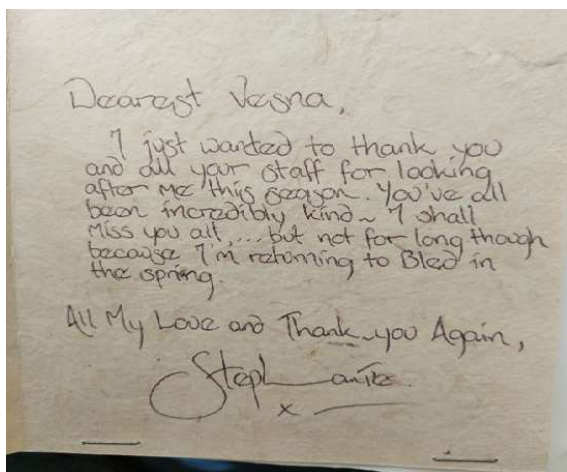 Dearest Vesna,
I just wanted to thank you
and all your staff for looking
after me this season. You've all
been incredibly kind ~ I shall
Miss you all,... but not for long though
because I'm returning to Bled in
the spring.
All My Love and Thank you Again,
Stephanie.
x